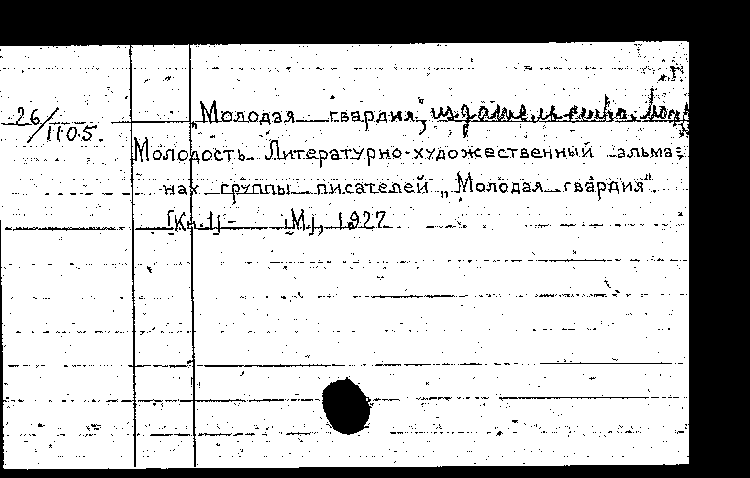 26/1105.
„Молодая гвардия", издательство.
Молодость. Литературно-художественный альма=
нах группы писателей „Молодая гвардия".
[Кн.1] - [М], 1927